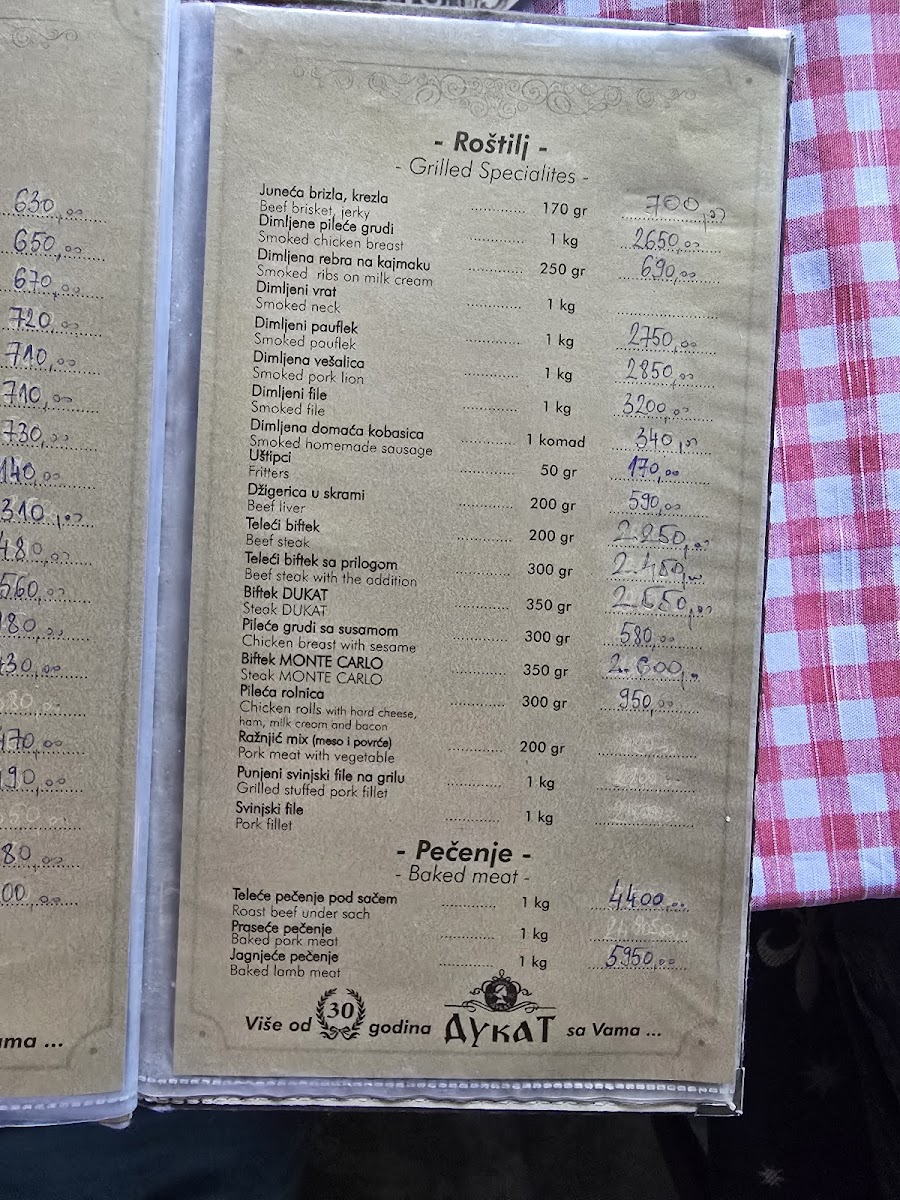 630,00
650,00
670,00
720,00
710,00
710,00
730,00
140,00
310,00
480,00
560,00
80,00
430,00
470,00
190,00
80,00
00,00
ama ...
- Roštilj -
- Grilled Specialites -
Juneća brizla, krezla
Beef brisket, jerky ............... 170 gr 700,00
Dimljene pileće grudi
Smoked chicken breast ............... 1 kg 2650,00
Dimljena rebra na kajmaku
Smoked ribs on milk cream ............... 250 gr 690,00
Dimljeni vrat
Smoked neck ............... 1 kg
Dimljeni pauflek
Smoked pauflek ............... 1 kg 2750,00
Dimljena vešalica
Smoked pork lion ............... 1 kg 2850,00
Dimljeni file
Smoked file ............... 1 kg 3200,00
Dimljena domaća kobasica
Smoked homemade sausage ............... 1 komad 340,00
Uštipci
Fritters ............... 50 gr 170,00
Džigerica u skrami
Beef liver ............... 200 gr 590,00
Teleći biftek
Beef steak ............... 200 gr 2.250,00
Teleći biftek sa prilogom
Beef steak with the addition ............... 300 gr 2.450,00
Biftek DUKAT
Steak DUKAT ............... 350 gr 2.550,00
Pileće grudi sa susamom
Chicken breast with sesame ............... 300 gr 580,00
Biftek MONTE CARLO
Steak MONTE CARLO ............... 350 gr 2.600,00
Pileća rolnica
Chicken rolls with hard cheese, ............... 300 gr 950,00
ham, milk cream and bacon
Ražnjić mix (meso i povrće)
Pork meat with vegetable ............... 200 gr
Punjeni svinjski file na grilu
Grilled stuffed pork fillet ............... 1 kg
Svinjski file
Pork fillet ............... 1 kg
- Pečenje -
- Baked meat -
Teleće pečenje pod sačem
Roast beef under sach ............... 1 kg 4400,00
Praseće pečenje
Baked pork meat ............... 1 kg
Jagnjeće pečenje
Baked lamb meat ............... 1 kg 5950,00
Više od 30 godina ДУКАТ sa Vama ...